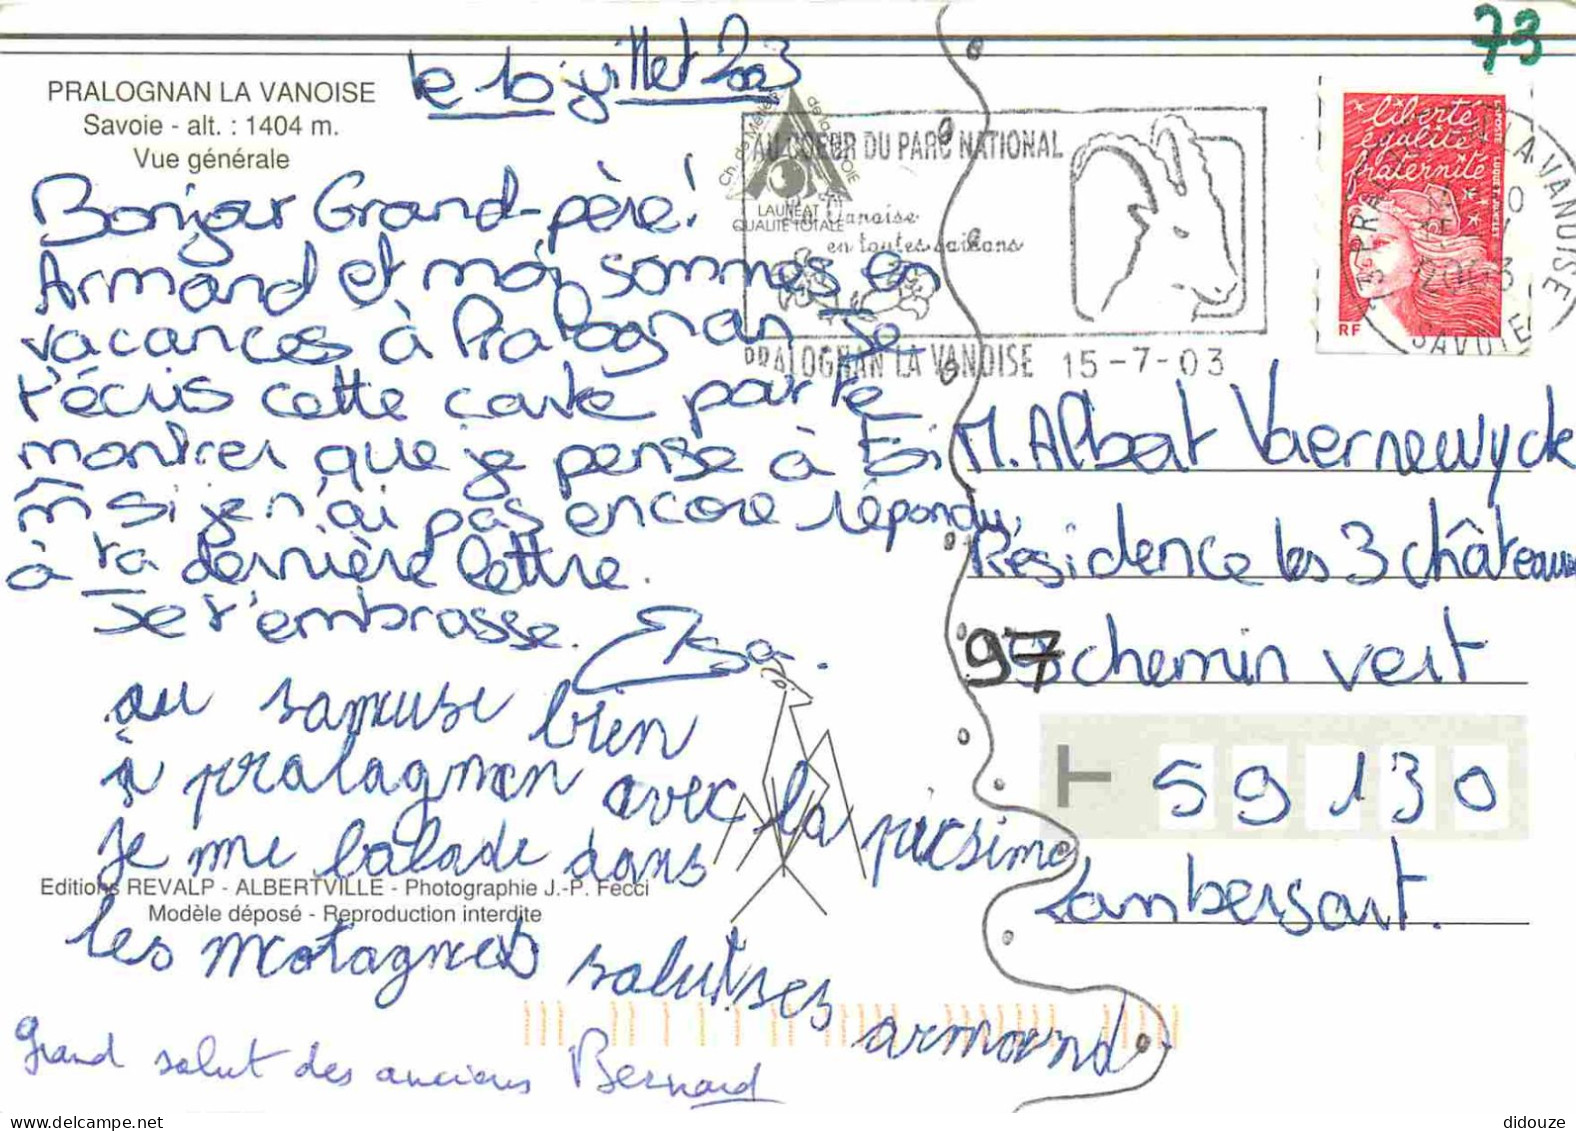 73
le 10 juillet 2003
PRALOGNAN LA VANOISE
Savoie - alt. : 1404 m.
Vue générale
Ch. de Métiers de la SAVOIE
LAURÉAT
QUALITÉ TOTALE
AU COEUR DU PARC NATIONAL
Vanoise
en toutes saisons
PRALOGNAN LA VANOISE 15-7-03
liberté
égalité
fraternité
RF
PRALOGNAN LA VANOISE
2003
SAVOIE
Bonjour Grand-père!
Armand et moi sommes en
vacances à Pralognan Je
t'écris cette carte pour te
montrer que je pense à toi
m si je n'ai pas encore répondu
à ta dernière lettre.
Je t'embrasse. Elsa.
M. Albert Vaernewyck
Résidence les 3 châteaux
97 chemin vert
59130
Lambersart.
au samuse bien
à pralagnan avec la picsine
je me balade dans
les motagnes salutses armand
Editions REVALP - ALBERTVILLE - Photographie J.-P. Fecci
Modèle déposé - Reproduction interdite
Grand salut des anciens Bernard
didouze